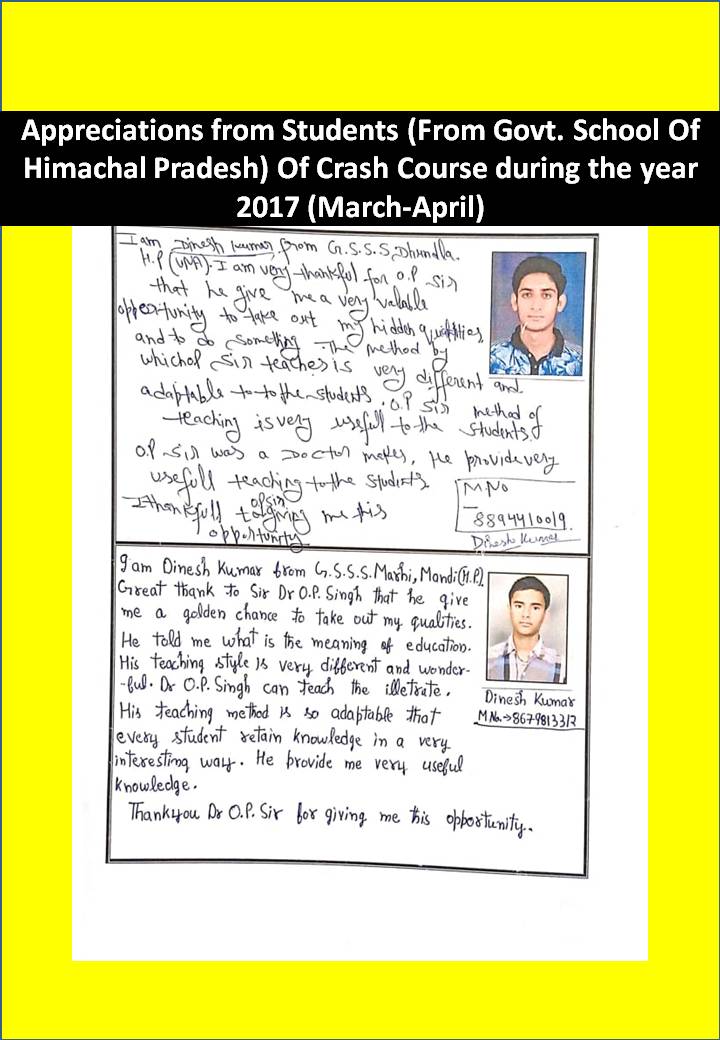 Appreciations from Students (From Govt. School Of
Himachal Pradesh) Of Crash Course during the year
2017 (March-April)
I am Dinesh Kumar, from G.S.S.S, Dhundla.
H.P (UNA). I am very thankful for O.P Sir
that he give me a very valable
opportunity to take out my hidden qualities
and to do something. The method by
which of Sir teaches is very different and
adaptable to to the students. O.P Sir method of
teaching is very useful to the students.
O.P Sir was a Doctor maker, He provide very
usefull teaching to the students
I thankfull to O.P Sir giving me this
opportunity
M.No
8894410019.
Dinesh Kumar
I am Dinesh Kumar from G.S.S.S. Marhi, Mandi (H.P).
Great thank to Sir Dr O.P. Singh that he give
me a golden chance to take out my qualities.
He told me what is the meaning of education.
His teaching style is very different and wonder-
-ful. Dr O.P. Singh can teach the illetrate.
His teaching method is so adaptable that
every student retain knowledge in a very
interesting way. He provide me very useful
knowledge.
Thankyou Dr O.P. Sir for giving me this opportunity..
Dinesh Kumar
M.No.→8679813312